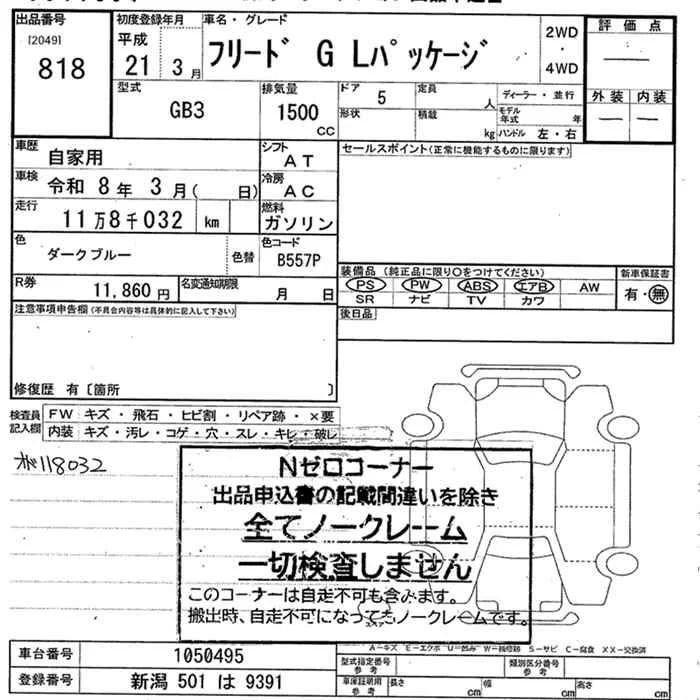 出品番号
[2049]
818
初度登録年月
平成
21 3月
車名・グレード
フリード G Lパッケージ
2WD
・
4WD
評価点
外装 内装
型式
GB3
排気量
1500
CC
ドア 5
定員
人
ディーラー・並行
形状
積載
kg
モデル年式 年
ハンドル 左・右
車歴
自家用
シフト
AT
セールスポイント(正常に機能するものに限ります)
車検
令和 8年 3月( 日)
冷房
AC
走行
11万8千032 km
燃料
ガソリン
色
ダークブルー
色替
色コード
B557P
装備品 (純正品に限り○をつけてください)
新車保証書
PS PW ABS エアB AW
有・無
SR ナビ TV カワ
R券
11,860 円
名変通知期限
月 日
後日品
注意事項申告欄(不具合内容等は具体的に記入して下さい)
修復歴 有〔箇所 〕
検査員記入欄
FW キズ・飛石・ヒビ割・リペア跡・×要
内装 キズ・汚レ・コゲ・穴・スレ・キレ・破レ
118032
Nゼロコーナー
出品申込書の記載間違いを除き
全てノークレーム
一切検査しません
このコーナーは自走不可も含みます。
搬出時、自走不可になってもノークレームです。
スペア
A-キズ E-エクボ U-凹み W-補修跡 S-サビ C-腐食 XX-交換済
車台番号 1050495
型式指定番号
参考
類別区分番号
参考
登録番号 新潟 501 は 9391
車庫証明用
参考
長さ cm
幅 cm
高さ cm